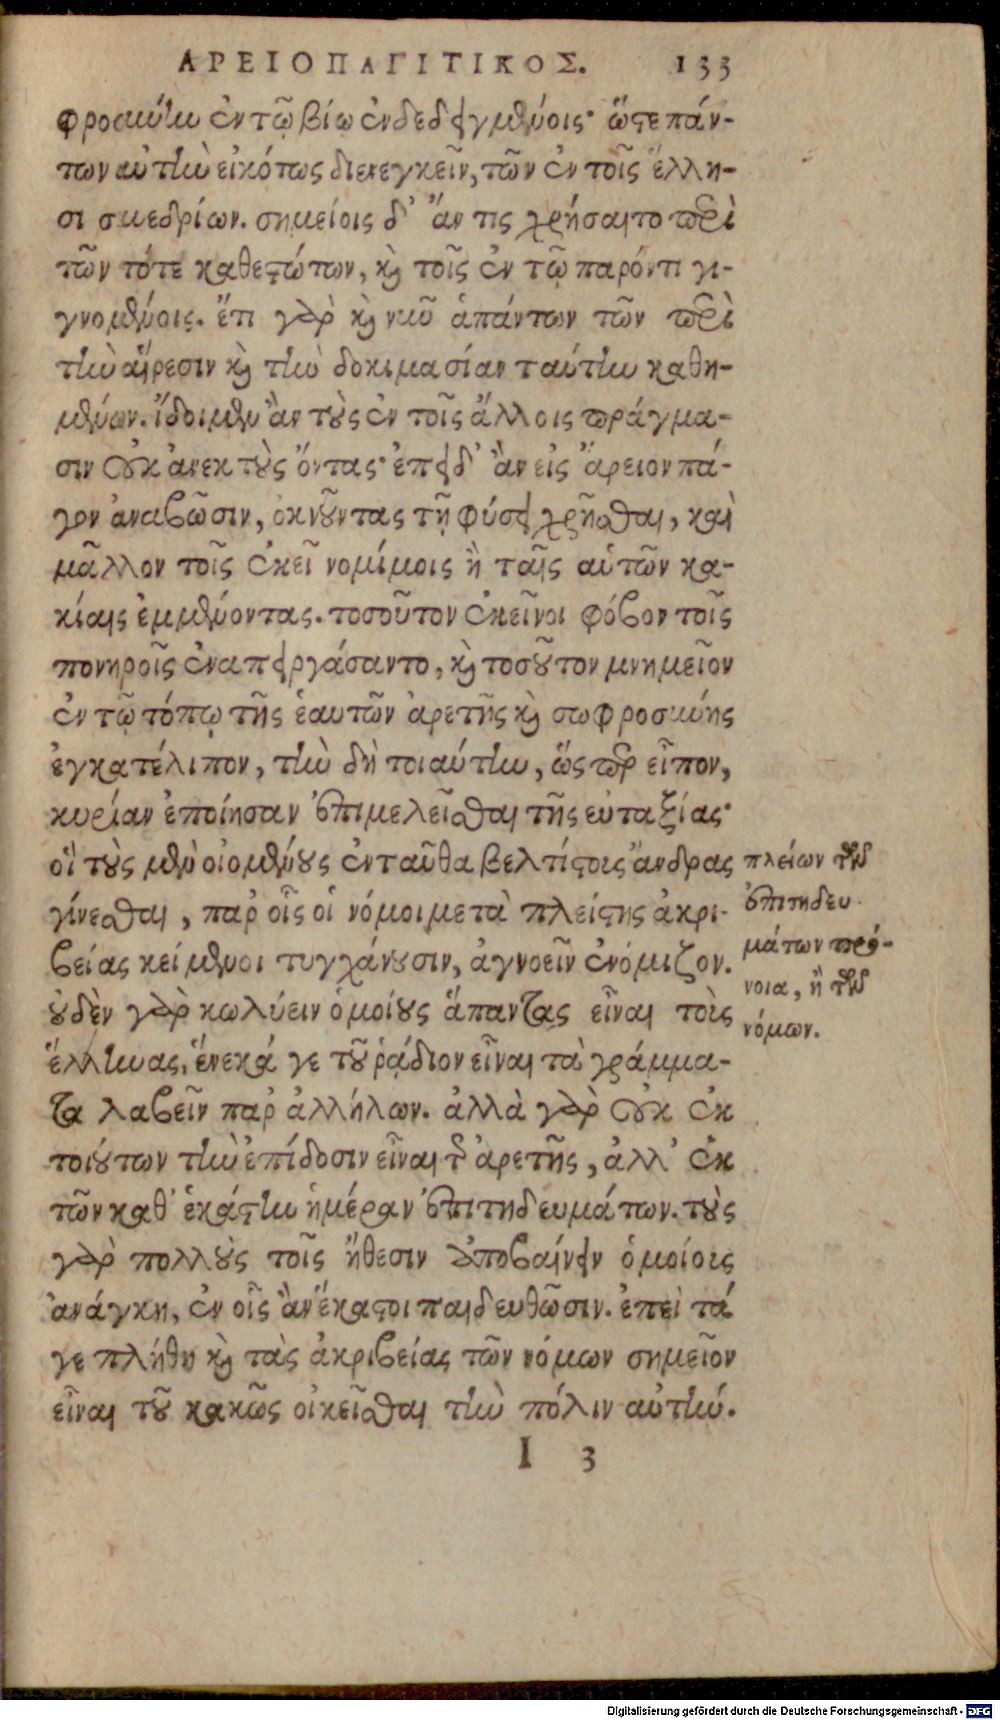 ΑΡΕΙΟΠΑΓΙΤΙΚΟΣ. 133
φροσύνην ἐν τῷ βίῳ ἐνδεδειγμένοις· ὥστε πάν-
των αὐτὴν εἰκότως διενεγκεῖν, τῶν ἐν τοῖς ἕλλη-
σι συνεδρίων. σημείοις δ' ἄν τις χρήσαιτο περὶ
τῶν τότε καθεστώτων, καὶ τοῖς ἐν τῷ παρόντι γι-
γνομένοις. ἔτι γὰρ καὶ νῦν ἁπάντων τῶν περὶ
τὴν αἵρεσιν καὶ τὴν δοκιμασίαν ταύτην καθη-
μένων. ἴδοιμεν ἂν τοὺς ἐν τοῖς ἄλλοις πράγμα-
σιν οὐκ ἀνεκτοὺς ὄντας· ἐπειδ' ἂν εἰς ἄρειον πά-
γον ἀναβῶσιν, ὀκνοῦντας τῇ φύσει χρῆσθαι, καὶ
μᾶλλον τοῖς ἐκεῖ νομίμοις ἢ ταῖς αὑτῶν κα-
κίαις ἐμμένοντας. τοσοῦτον ἐκεῖνοι φόβον τοῖς
πονηροῖς ἐναπειργάσαντο, καὶ τοσοῦτον μνημεῖον
ἐν τῷ τόπῳ τῆς ἑαυτῶν ἀρετῆς καὶ σωφροσύνης
ἐγκατέλιπον, τὴν δὴ τοιαύτην, ὥσπερ εἶπον,
κυρίαν ἐποίησαν ἐπιμελεῖσθαι τῆς εὐταξίας·
οἳ τοὺς μὲν οἰομένους ἐνταῦθα βελτίστους ἄνδρας
γίνεσθαι, παρ' οἷς οἱ νόμοι μετὰ πλείστης ἀκρι-
βείας κείμενοι τυγχάνουσιν, ἀγνοεῖν ἐνόμιζον.
οὐδὲν γὰρ κωλύειν ὁμοίους ἅπαντας εἶναι τοὺς
ἕλληνας, ἕνεκά γε τοῦ ῥᾴδιον εἶναι τὰ γράμμα-
τα λαβεῖν παρ' ἀλλήλων. ἀλλὰ γὰρ οὐκ ἐκ
τούτων τὴν ἐπίδοσιν εἶναι τῆς ἀρετῆς, ἀλλ' ἐκ
τῶν καθ' ἑκάστην ἡμέραν ἐπιτηδευμάτων. τοὺς
γὰρ πολλοὺς τοῖς ἤθεσιν ἀποβαίνειν ὁμοίους
ἀνάγκη, ἐν οἷς ἂν ἕκαστοι παιδευθῶσιν. ἐπεὶ τά
γε πλήθη καὶ τὰς ἀκριβείας τῶν νόμων σημεῖον
εἶναι τοῦ κακῶς οἰκεῖσθαι τὴν πόλιν αὐτήν.
I 3
πλείων τῶν
ἐπιτηδευ-
μάτων πρό-
νοια, ἢ τῶν
νόμων.
Digitalisierung gefördert durch die Deutsche Forschungsgemeinschaft - DFG